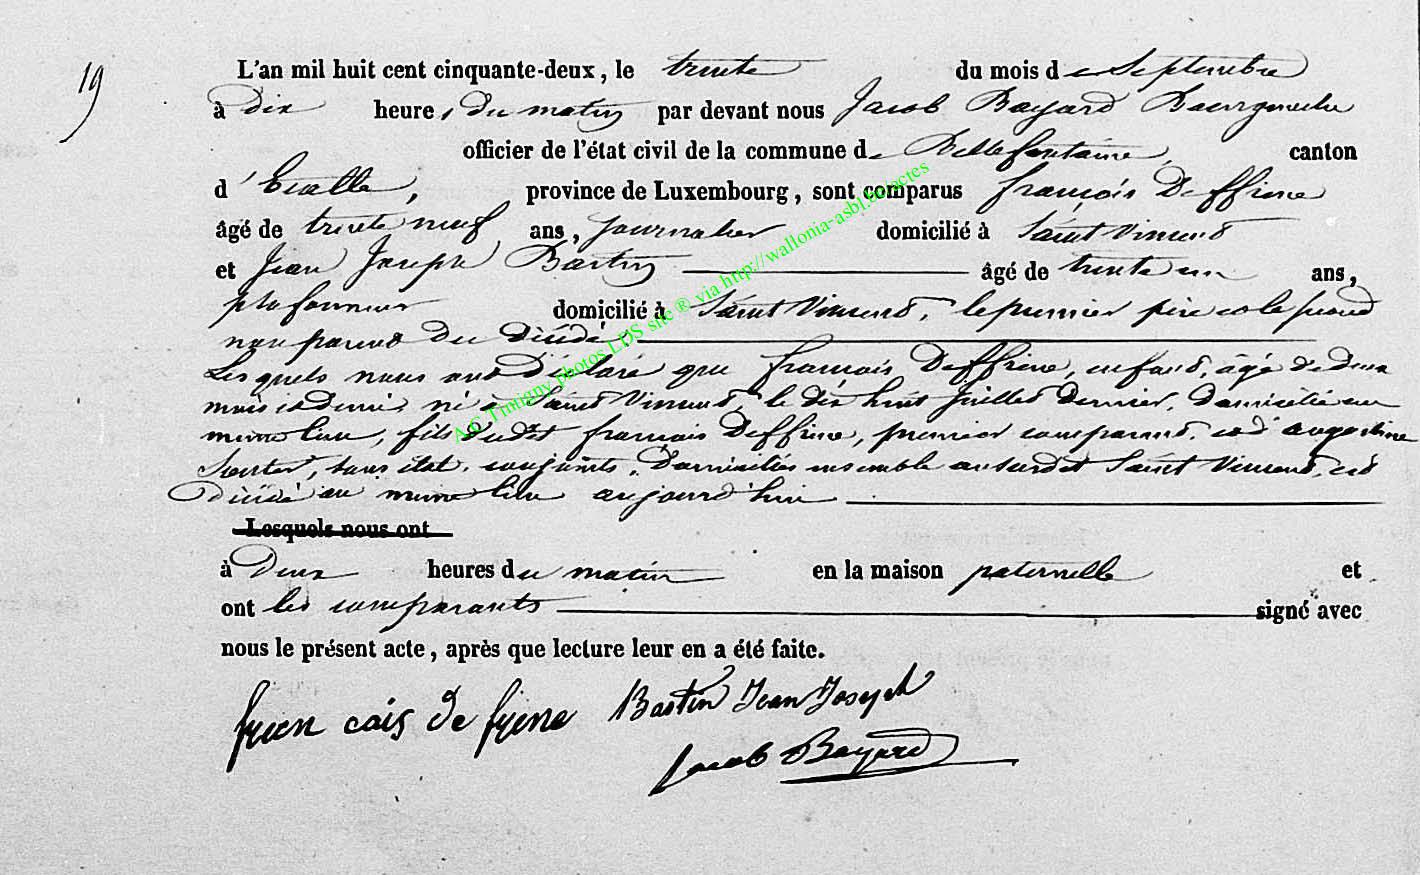 19
L'an mil huit cent cinquante-deux, le trente du mois de Septembre
à dix heures du matin par devant nous Jacob Bayard Bourgmestre
officier de l'état civil de la commune de Bellefontaine, canton
d'Etalle, province de Luxembourg, sont comparus françois Deffrène
âgé de trente neuf ans, journalier domicilié à Saint Vincent
et Jean Joseph Bastin âgé de trente un ans,
plafonneur domicilié à Saint Vincent, le premier père et le second
non parent du décédé
Lesquels nous ont déclaré que françois Deffrène, enfant, âgé de deux
mois et demi, né à Saint Vincent, le dix huit juillet dernier, domicilié au
même lieu, fils dudit françois Deffrène, premier comparant, et d'augustine
sans état, conjoints, domiciliés ensemble au susdit Saint Vincent, est
Décédé au même lieu aujourd'hui
Lesquels nous ont
à Deux heures du matin en la maison paternelle et
ont les comparants signé avec
nous le présent acte, après que lecture leur en a été faite.
fren cois de frene Bastin Jean Joseph
Jacob Bayard
A.C. Tintigny photos LDS site ® via http://wallonia-asbl.be/actes